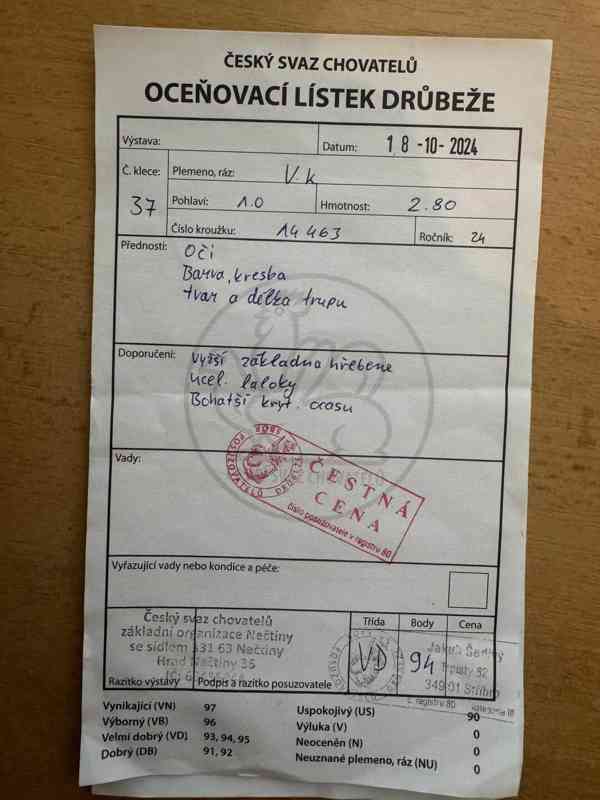 ČESKÝ SVAZ CHOVATELŮ
OCEŇOVACÍ LÍSTEK DRŮBEŽE
Výstava:
Datum: 18 -10- 2024
Č. klece: 37
Plemeno, ráz: V.k
Pohlaví: 1.0
Hmotnost: 2.80
Číslo kroužku: 14 463
Ročník: 24
Přednosti: Oči
Barva, kresba
tvar a délka trupu
Doporučení: Vyšší základna hřebene
ucel. laloky
Bohatší kryt. ocasu
Vady:
ČESTNÁ
CENA
číslo posuzovatele v registru 80
SVAZ CHOVATELŮ
Vyřazující vady nebo kondice a péče:
Český svaz chovatelů
základní organizace Nečtiny
se sídlem 331 63 Nečtiny
Hrad Nečtiny 36
Razítko výstavy
Podpis a razítko posuzovatele
Třída
Body
Cena
VD
94
Jakub Šedivý
349 01 Stříbro
č. registru 80
Vynikající (VN) 97
Výborný (VB) 96
Velmi dobrý (VD) 93, 94, 95
Dobrý (DB) 91, 92
Uspokojivý (US) 90
Výluka (V) 0
Neoceněn (N) 0
Neuznané plemeno, ráz (NU) 0